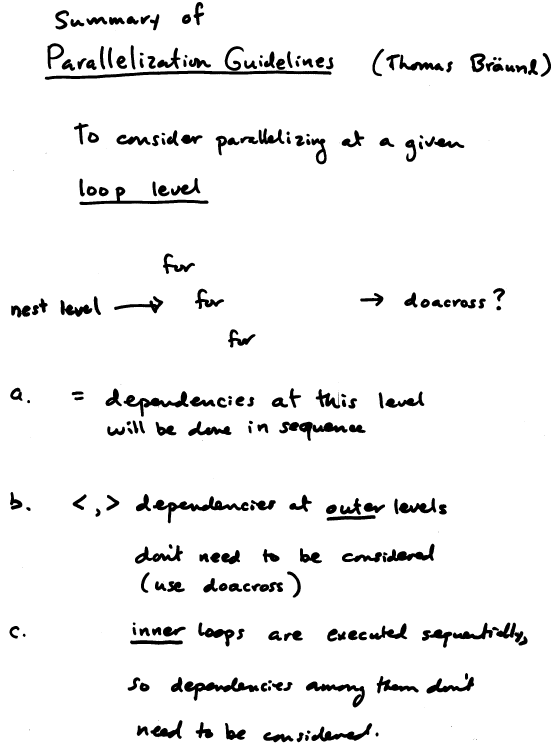 Summary of
Parallelization Guidelines (Thomas Bräunl)
To consider parallelizing at a given
loop level
for
nest level → for → doacross?
for
a. = dependencies at this level
will be done in sequence
b. <,> dependencies at outer levels
don't need to be considered
(use doacross)
c. inner loops are executed sequentially,
so dependencies among them don't
need to be considered.